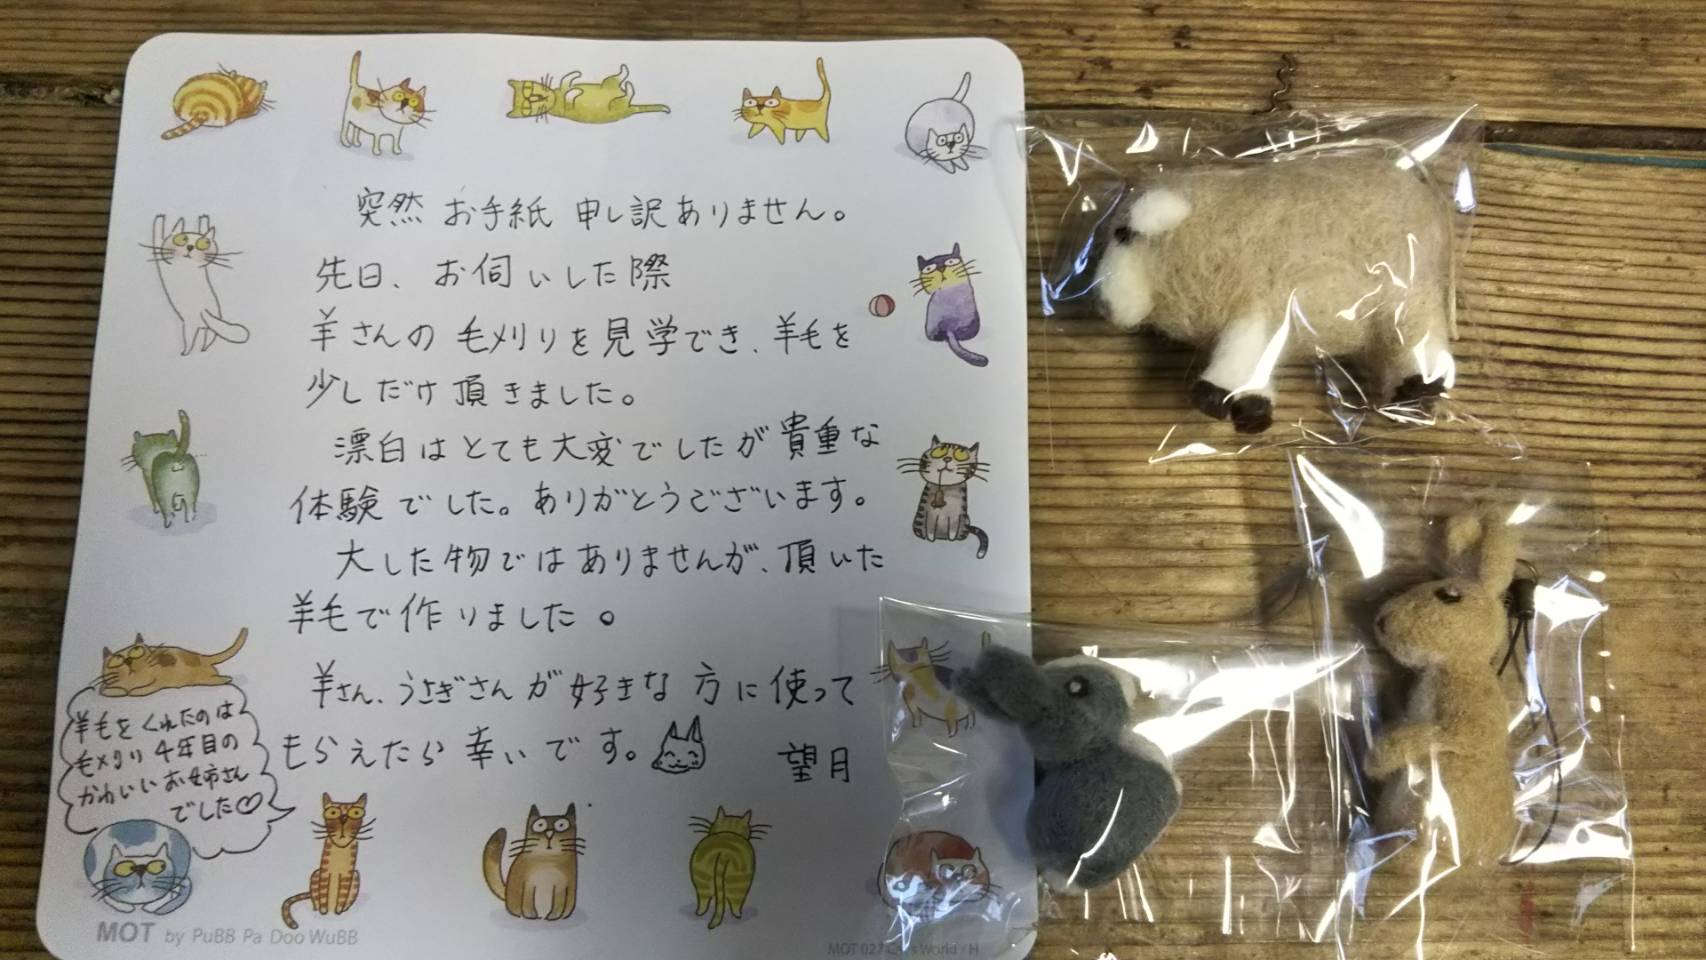 突然 お手紙 申し訳ありません。
先日、お伺いした際
羊さんの 毛刈りを見学でき、羊毛を
少しだけ頂きました。
漂白はとても大変でしたが貴重な
体験でした。ありがとうございます。
大した物ではありませんが、頂いた
羊毛で作りました。
羊さん、うさぎさんが好きな方に使って
もらえたら幸いです。
望月
羊毛をくれたのは
毛刈り4年目の
かわいいお姉さん
でした♡
MOT by PuBB Pa Doo WuBB
MOT 027 Cat's World / H